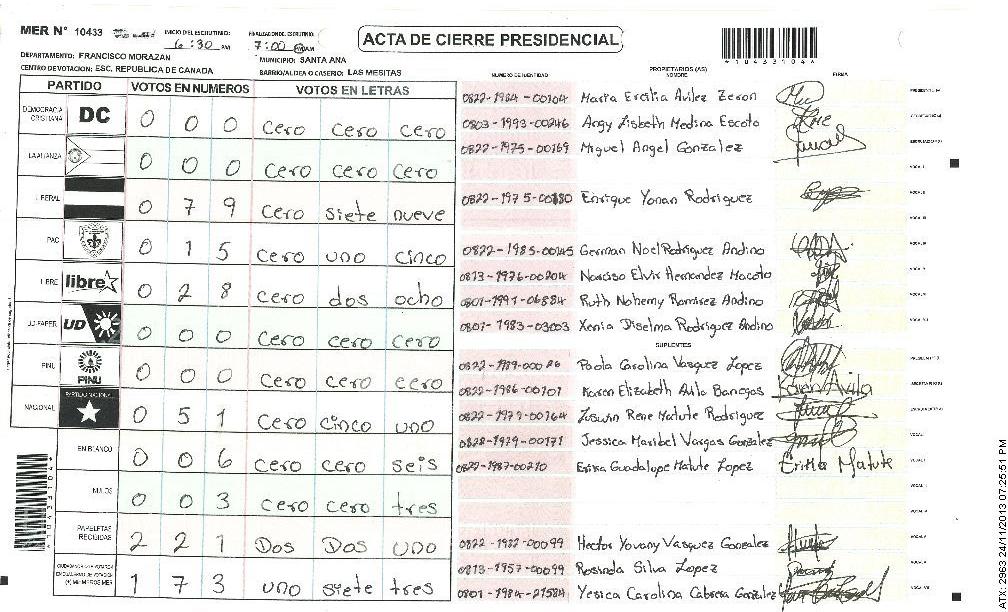 MER N° 10433
INICIO DEL ESCRUTINIO: 6:30 PM
FINALIZACION DE ESCRUTINIO: 7:00
ACTA DE CIERRE PRESIDENCIAL
*10433104*
DEPARTAMENTO: FRANCISCO MORAZAN
MUNICIPIO: SANTA ANA
CENTRO DE VOTACION: ESC. REPUBLICA DE CANADA
BARRIO/ALDEA O CASERIO: LAS MESITAS
PARTIDO VOTOS EN NUMEROS VOTOS EN LETRAS
DEMOCRACIA CRISTIANA DC 0 0 0 cero cero cero
LA ALIANZA 0 0 0 cero cero cero
LIBERAL 0 7 9 cero siete nueve
PAC 0 1 5 cero uno cinco
LIBRE libre 0 2 8 cero dos ocho
UD-FAPER UD 0 0 0 cero cero cero
PINU PINU 0 0 0 cero cero cero
NACIONAL PARTIDO NACIONAL 0 5 1 cero cinco uno
EN BLANCO 0 0 6 cero cero seis
NULOS 0 0 3 cero cero tres
PAPELETAS RECIBIDAS 2 2 1 Dos Dos uno
1 7 3 uno siete tres
NUMERO DE IDENTIDAD PROPIETARIOS (AS) NOMBRE FIRMA
0822-1984-00104 Maria Ercilia Avilez Zeron
0803-1993-00246 Angy Lisbeth Medina Escoto
0822-1975-00169 Miguel Angel Gonzalez
0822-1975-00180 Enrique Yonan Rodriguez
0822-1985-00145 German Noel Rodriguez Andino
0813-1976-00204 Narciso Elvir Hernandez
0801-1991-06884 Ruth Nohemy Ramirez Andino
0801-1983-03003 Xenia Diselma Rodriguez Andino
SUPLENTES
0822-1989-00026 Paola Carolina Vasquez Lopez
0822-1986-00101 Karen Elizabeth Avila Banegas Karen Avila
0822-1979-00164 Rene Matute Rodriguez
0828-1979-00171 Jessica Maribel Vargas Gonzalez
0822-1987-00210 Erika Guadalupe Matute Lopez Erika Matute
0822-1982-00099 Hector Yovany Vasquez Gonzalez
0813-1957-00099 Rosinda Silva Lopez
0801-1984-21584 Yesica Carolina Cabrera Gonzalez
*10433104*
ATX-2963 24/11/2013 07:25:51 PM